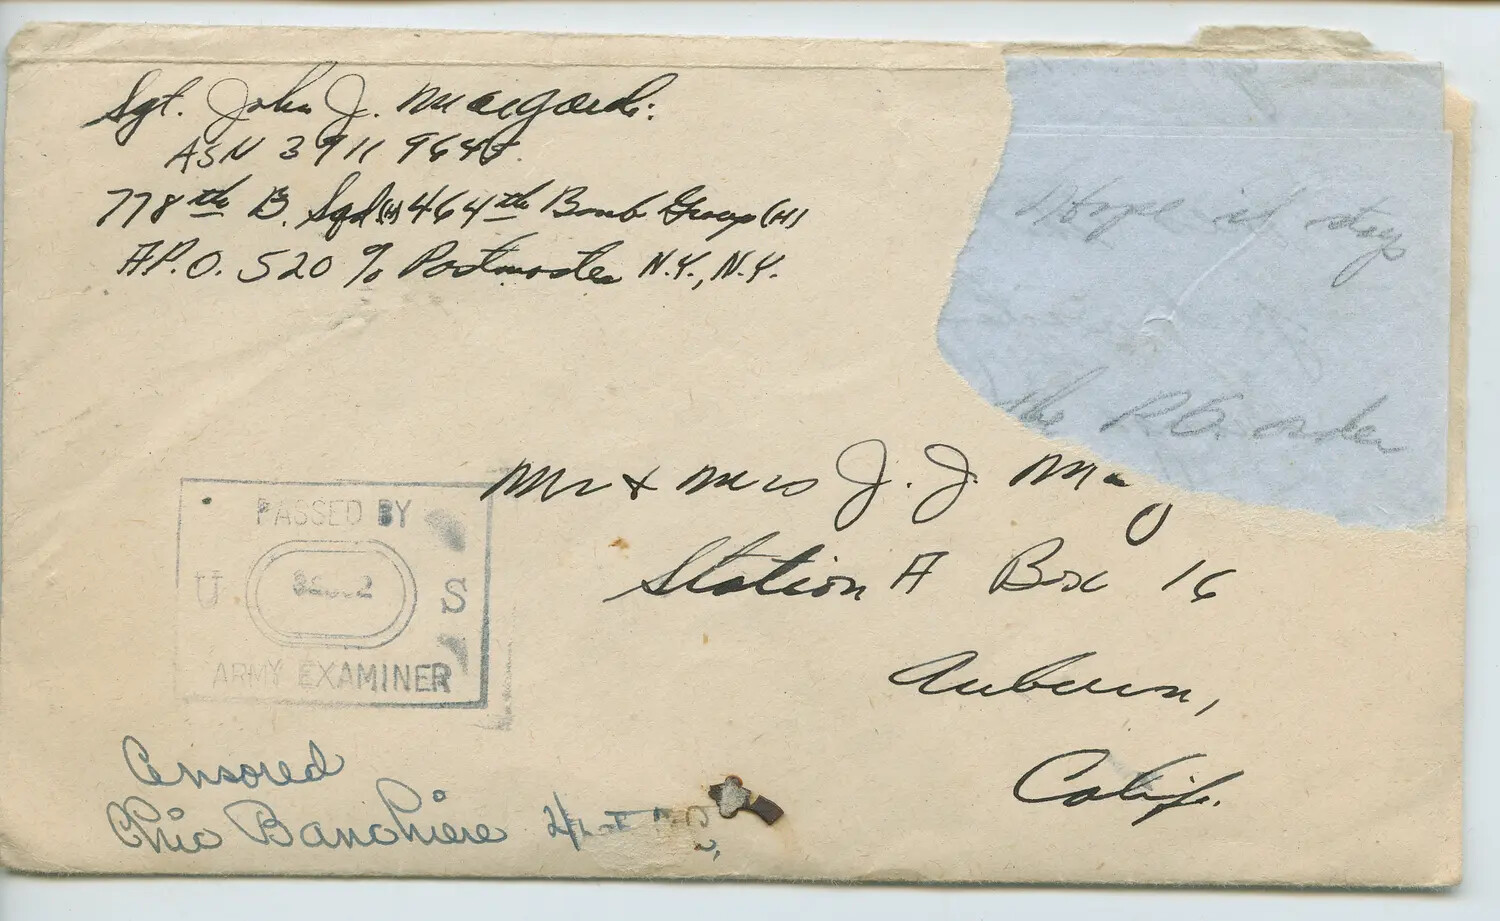 Sgt. John J. Macgowdi:
ASN 3911 964
778th B. Sqd(H) 464th Bomb Group (H)
A.P.O. 520 % Postmaster N.Y., N.Y.
I Hope it stays
the P.O. order
Mr & Mrs J. J. Mag
Station A Box 16
Auburn,
Calif.
PASSED BY
U S
ARMY EXAMINER
Censored
Chic Banchiere